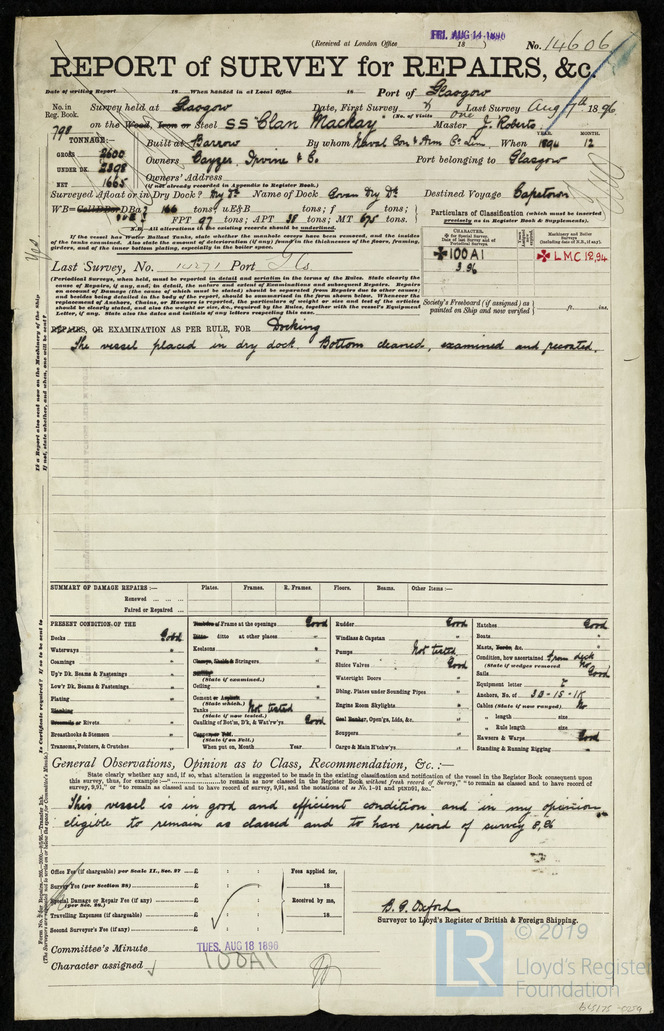 FRI. AUG 14 1896
(Received at London Office 18 )
No. 14606
REPORT of SURVEY for REPAIRS, &c.
Date of writing Report 18 When handed in at Local Office 18 Port of Glasgow
No. in Reg. Book. Survey held at Glasgow Date, First Survey Last Survey Aug 7th 1896
(No. of Visits one
798 on the Wood, Iron or Steel SS "Clan Mackay" Master J. Roberts
TONNAGE:—
GROSS 2600
UNDER DK. 2398
NET 1665
Built at Barrow By whom Naval Con & Arm Co Lim When YEAR. 1894 MONTH. 12
Owners Cayzer, Irvine & Co. Port belonging to Glasgow
Owners' Address
(if not already recorded in Appendix to Register Book.)
Surveyed Afloat or in Dry Dock? Dry Dk Name of Dock Govan Dry Dk Destined Voyage Capetown
FPT 97 tons; APT 38 tons; MT 675 tons
N.B.—All alterations in the existing records should be underlined.
If the vessel has Water Ballast Tanks, state whether the manhole covers have been removed, and the insides
of the tanks examined. Also state the amount of deterioration (if any) found in the thicknesses of the floors, framing,
girders, and of the inner bottom plating, especially in the boiler space.
Particulars of Classification (which must be inserted
precisely as in Register Book & Supplements).
CHARACTER.
✠100A1
3.96
Machinery and Boiler Surveys
(including date of N.B., if any).
✠LMC 12,94
Society's Freeboard (if assigned) as
painted on Ship and now verified ft. ins.
Last Survey, No. Port Gls
(Periodical Surveys, when held, must be reported in detail and seriatim in the terms of the Rules. State clearly the
cause of Repairs, if any, and, in detail, the nature and extent of Examinations and subsequent Repairs. Repairs
on account of Damage (the cause of which must be stated) should be separated from Repairs due to other causes;
and besides being detailed in the body of the report, should be summarised in the form shewn below. Whenever the
replacement of Anchors, Chains, or Hawsers is reported, the particulars of weight or size and test of the articles
should be clearly stated, and also the weight or size, &c., required by the Rules, together with the vessel's Equipment
Letter, if any. State also the dates and initials of any letters respecting this case.
REPAIRS, OR EXAMINATION AS PER RULE, FOR Docking
The vessel placed in dry dock. Bottom cleaned, examined and recoated.
SUMMARY OF DAMAGE REPAIRS:— Plates. Frames. R. Frames. Floors. Beams. Other Items:—
Renewed ... ... ...
Faired or Repaired ...
PRESENT CONDITION OF THE
Decks Good
Waterways "
Coamings "
Up'r Dk. Beams & Fastenings "
Low'r Dk. Beams & Fastenings "
Plating "
Rivets "
Breasthooks & Stemson "
Transoms, Pointers, & Crutches "
Frame at the openings Good
ditto at other places "
Keelsons "
Stringers "
(State if examined.)
Ceiling "
Cement
(State which.)
Tanks Not tested
(State if now tested.)
Caulking of Bot'm, D'k, & Wat'rw'ys Good
(State if on Felt.)
When put on, Month Year
Rudder Good
Windlass & Capstan "
Pumps Not tested
Sluice Valves Good
Watertight Doors "
Dblng. Plates under Sounding Pipes "
Engine Room Skylights "
Coal Bunker, Open'gs, Lids, &c. "
Scuppers "
Cargo & Main H'tchw'ys "
Hatches Good
Boats "
Masts, Yards, &c. "
Condition, how ascertained from deck
(State if wedges removed No
Sails Good
Equipment letter
Anchors, No. of 3B-1S-1K
Cables (State if now ranged) No
" length size "
" Rule length size "
Hawsers & Warps Good
Standing & Running Rigging "
General Observations, Opinion as to Class, Recommendation, &c.:—
State clearly whether any, and if so, what alteration is suggested to be made in the existing classification and notification of the vessel in the Register Book consequent upon
this survey, thus, for example:— to remain as now classed in the Register Book without fresh record of Survey," "to remain as classed and to have record of
survey, 9,91," or "to remain as classed and to have record of survey, 9,91, and the notations of ss No. 1-91 and ptND91, &c.."
This vessel is in good and efficient condition and in my opinion
eligible to remain as classed and to have record of survey 8,96
Office Fee (if chargeable) per Scale II., Sec. 27 £ : : Fees applied for,
Survey Fee (per Section 28) £ : : 18
Special Damage or Repair Fee (if any) £ : : Received by me,
(per Sec. 28.)
Travelling Expenses (if chargeable) £ : : 18
Second Surveyor's Fee (if any) £ : :
B. G. Oxford
Surveyor to Lloyd's Register of British & Foreign Shipping.
Committee's Minute TUES. AUG 18 1896
Character assigned 100A1
© 2019
LR Lloyd's Register
Foundation